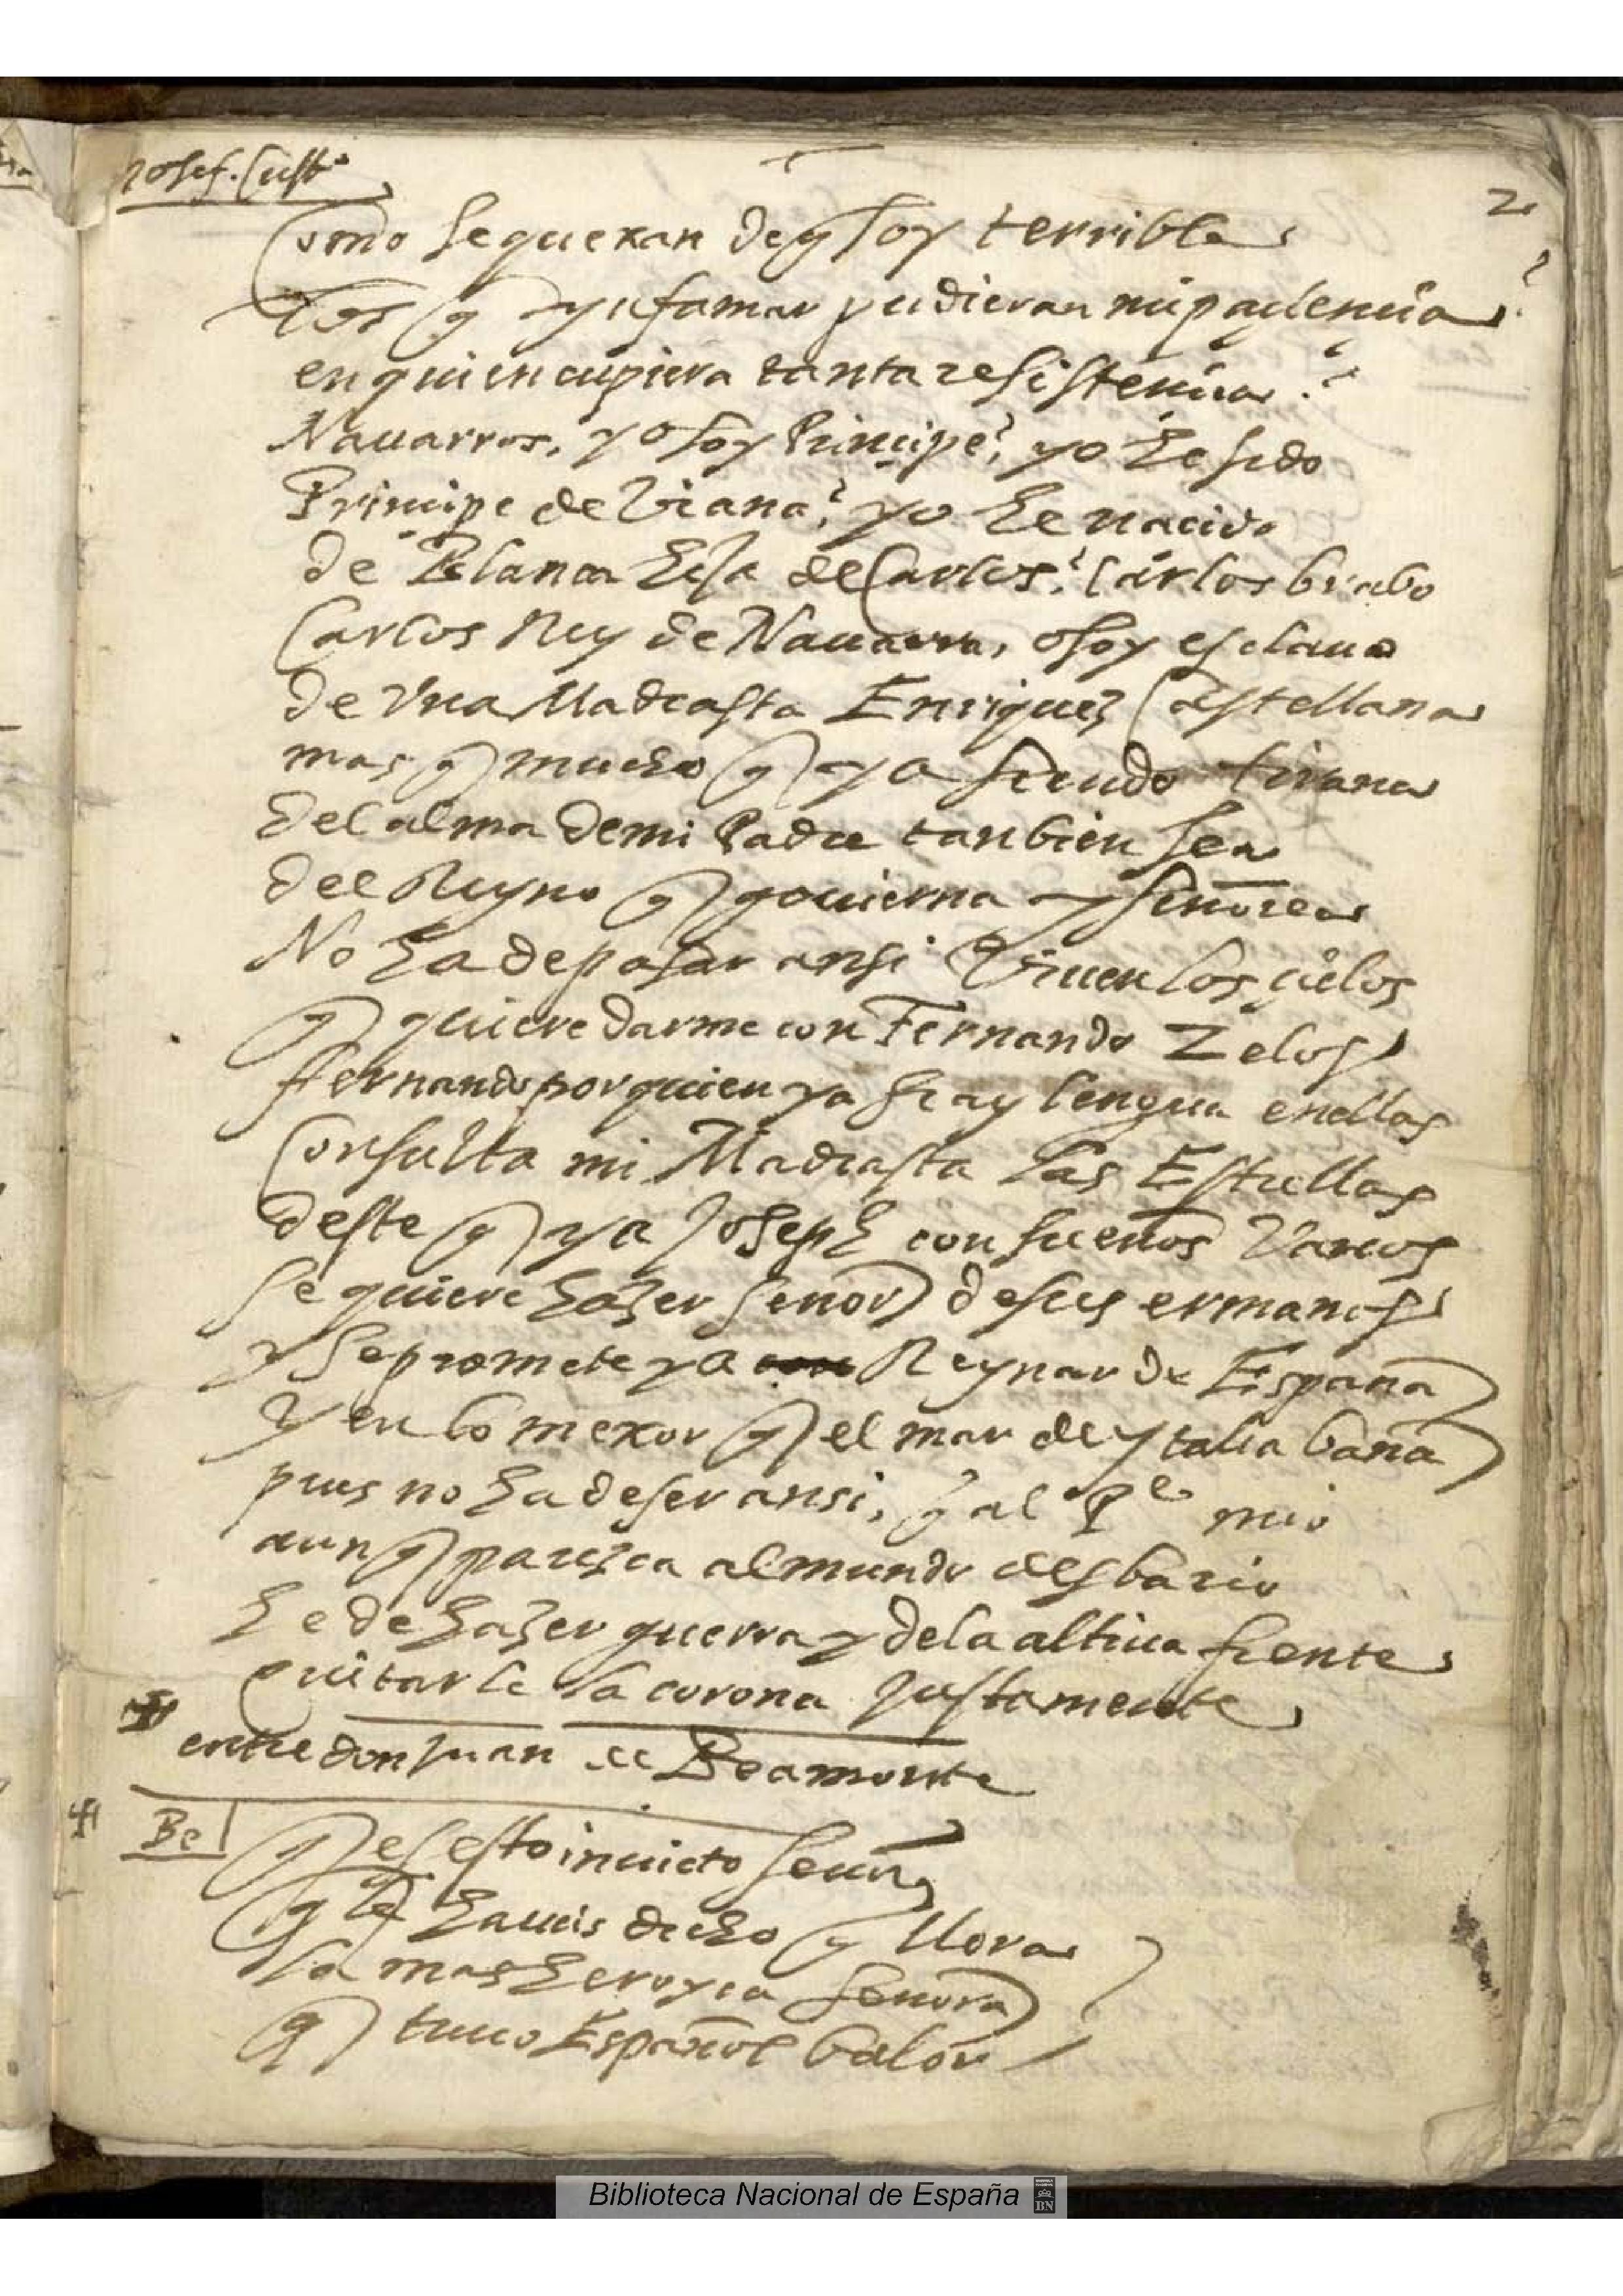 2
Como se quexan de q soy terrible
los q ynfamar pudieran mi paçiençia?
en quien cupiera tanta resistençia?
Nauarros, yo soy Prinçipe? yo he sido
Prinçipe de Viana? yo he nacido
de Blanca hija de Carlos? Carlos brabo
Carlos Rey de Nauarra, o soy esclauo
de vna Madrasta Enriquez Castellana
mas q mucho q ya siendo tirana
del alma de mi Padre tanbien sea
del Reyno q gouierna y señorea
No ha de pasar ansi viuen los çielos
q quiere darme con Fernando Zelos
fernando por quien ya si ay lengua en ellas
Consulta mi Madrasta las Estrellas
deste q ya Joseph con sueños Vanos
se quiere hazer señor de sus ermanos
y se promete ya Reynar de España
y en lo mexor q el mar de ytalia baña
pues no ha de ser ansi, q al Pe mio
aunq parezca al mundo desbario
he de hazer guerra y de la altiua frente
quitarle la corona justamente
entre don Juan de Beamonte
Be
q es esto inuicto señor
q le haueis dicho q llora
la mas heroyca señora
q tuuo Español balor
Biblioteca Nacional de España
BN